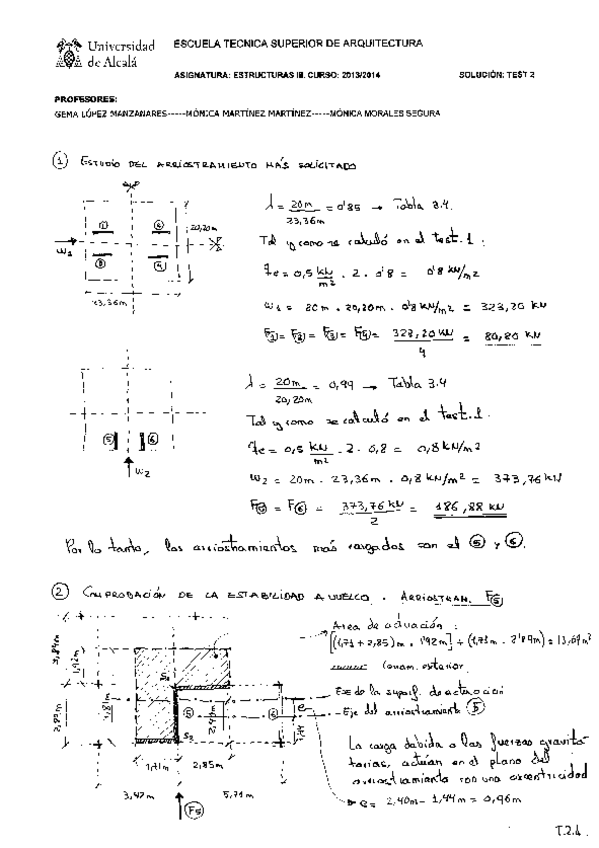 Universidad
de Alcalá
ESCUELA TECNICA SUPERIOR DE ARQUITECTURA
ASIGNATURA: ESTRUCTURAS III. CURSO: 2013/2014 SOLUCIÓN: TEST 2
PROFESORES:
GEMA LÓPEZ MANZANARES-----MÓNICA MARTÍNEZ MARTÍNEZ-----MÓNICA MORALES SEGURA
① ESTUDIO DEL ARRIOSTRAMIENTO MÁS SOLICITADO
λ = 20m / 23,36m = 0'85 → Tabla 3.4.
Tal y como se calculó en el test.1:
qe = 0,5 kN/m2 · 2 · 0'8 = 0'8 kN/m2
20,20m
W1
23,36m
W1 = 20m · 20,20m · 0'8 kN/m2 = 323,20 kN
F1 = F2 = F3 = F4 = 323,20 kN / 4 = 80,80 kN
λ = 20m / 20,20m = 0,99 → Tabla 3.4
Tal y como se calculó en el test.1.
qe = 0,5 kN/m2 · 2 · 0,8 = 0,8 kN/m2
⑤ ⑥
W2
W2 = 20m · 23,36m · 0,8 kN/m2 = 373,76 kN
F5 = F6 = 373,76 kN / 2 = 186,88 kN
Por lo tanto, los arriostramientos más cargados son el ⑤ y ⑥.
② COMPROBACIÓN DE LA ESTABILIDAD A VUELCO. ARRIOSTRAM. F5
Area de actuación:
[(1,71 + 2,85)m · 1'92m] + (1,71m · 2'89m) = 13,69m2
3,84m
1,92m
Eje de la superf. de actuación
Eje del arriostramiento ⑤
⑤ ⑥
e
La carga debida a las fuerzas gravita-
torias, actúan en el plano del
arriostramiento con una excentricidad
1,71m 2,85m
3,42m 5,71m
F5
e = 2,40m - 1,44m = 0,96m
T.2.1